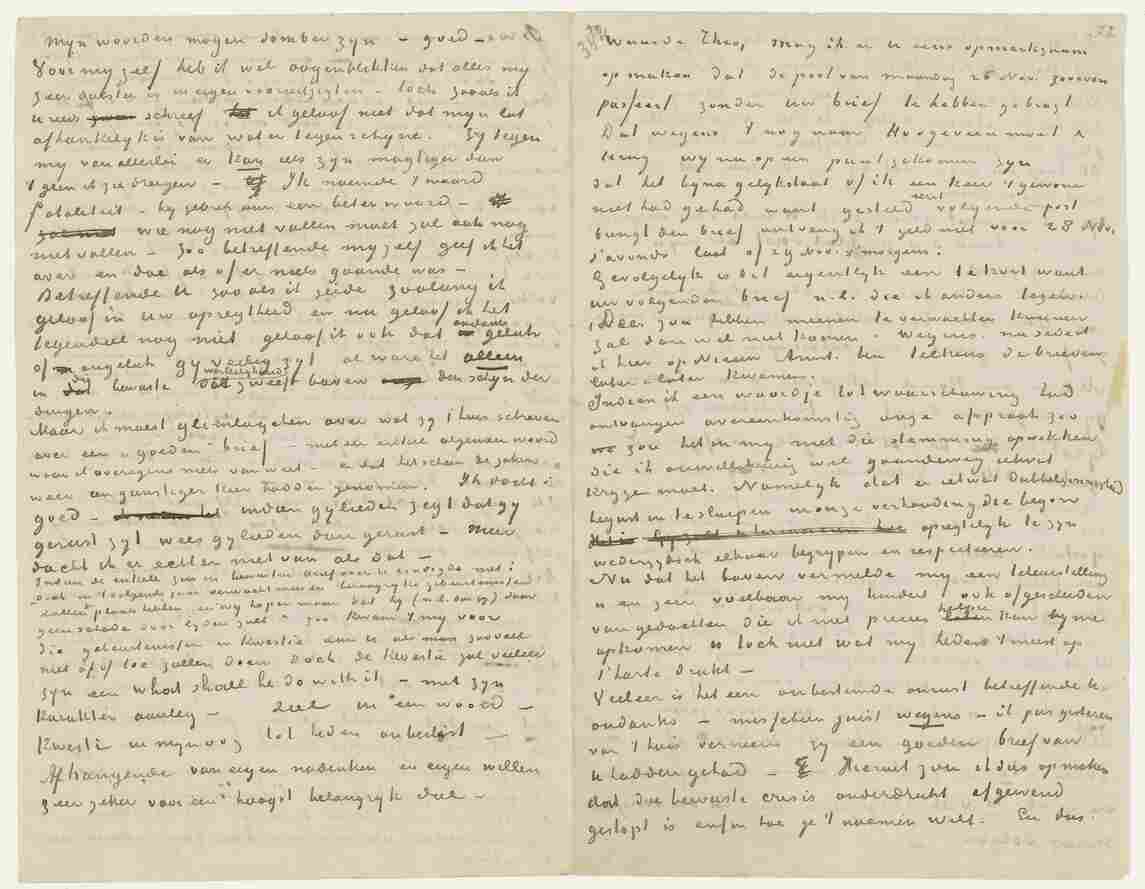 Mijn woorden mogen somber zijn – goed –
Voor mij zelf heb ik wel oogenblikken dat alles mij
zeer duister is in eigen vooruitzigten – doch zooals ik
U reeds schreef ik geloof niet dat mijn lot
afhankelijk is van wat er tegen schijne. Zij tegen
mij van allerlei er kan iets zijn magtiger dan
't geen ik zie dreigen – Ik noemde 't woord
fataliteit – bij gebrek aan een beter woord –
wie nog niet vallen moet zal ook nog
niet vallen – zoo betreffende mij zelf geef ik het
over en doe als of er niets gaande was –
Betreffende U zoo als ik zeide zoolang ik
geloof in uw opregtheid en nu geloof ik het
tegendeel nog niet geloof ik ook dat ondanks geluk
of ongeluk gij veilig zijt al ware het alleen
in die bewuste werkelijkheid zweeft boven den schijn der
dingen.
Maar ik moest glimlagchen over wat zij t'huis schreven
over een "goeden" brief – met een enkel algemeen woord
waar ik overigens niets van weet – en dat het scheen de zaken
weer een gunstiger keer hadden genomen. Ik dacht :
goed – indien gijlieden zegt dat gij
gerust zijt wees gijlieden dan gerust – Meer
dacht ik er echter niet van als dat –
Indien de enkele
plaats hebben en wij hopen maar dat hij (n.l. ) daar
geen schade door lijden zal" – zoo kwam 't mij voor
die gebeurtenissen in kwestie aan er als man zooveel
niet af of toe zullen doen doch de kwestie zal veeleer
zijn een what shall he do with it – met zijn
karakter aanleg – ziel in een woord –
kwestie in mijn oog tot heden onbeslist –
Afhangende van eigen nadenken en eigen willen
zeer zeker voor een hoogst belangrijk deel –
Waarde Theo, mag ik er U eens opmerkzaam
op maken dat de post van maandag 26 Nov. zooeven
passeert zonder uw brief te hebben gebragt
Dat wegens 't nog naar Hoogeveen moet &
terug wij nu op een punt gekomen zijn
dat het bijna gelijkstaat of ik een keer 't gewone
niet had gehad want gesteld eerst volgende post
brengt den brief ontvang ik 't geld niet voor 28 Nov.
s'avonds laat of 29 Nov. s'morgens.
Gevolgelijk is dit eigentlijk een te kort want
uw volgenden brief n.l. die ik anders tegen
1 Dec. zou hebben meenen te verwachten kunnen
zal dan wel niet komen. Wegens nu sedert
ik hier op Nieuw Amst. ben telkens de brieven
later & later kwamen.
Indien ik een woordje tot waarschuwing had
ontvangen overeenkomstig onze afspraak zoo
zou het in mij niet die stemming opwekken
die ik onwillekeurig wel gaandeweg ietwat
krijgen moet. Namelijk dat er ietwat dubbel
begint in te sluipen in onze verhouding die begon
opregtelijk te zijn
wederzijdsch elkaar begrijpen en respecteeren.
Nu dat het boven vermelde mij een teleurstelling
is en zeer voelbaar mij hindert ook afgescheiden
van gedachten die ik niet precies helpen kan bij me
opkomen is toch niet wat mij heden 't meest op
t'harte drukt –
Veeleer is het een onbestemde onrust betreffende U.
ondanks – misschien juist wegens – ik pas gisteren
van t'huis vernam zij een goeden brief van
U hadden gehad – Hieruit zou ik dus opmaken
dat die bewuste crisis onderdrukt afgewend
gestopt is enfin hoe ge 't noemen wilt. En dus.